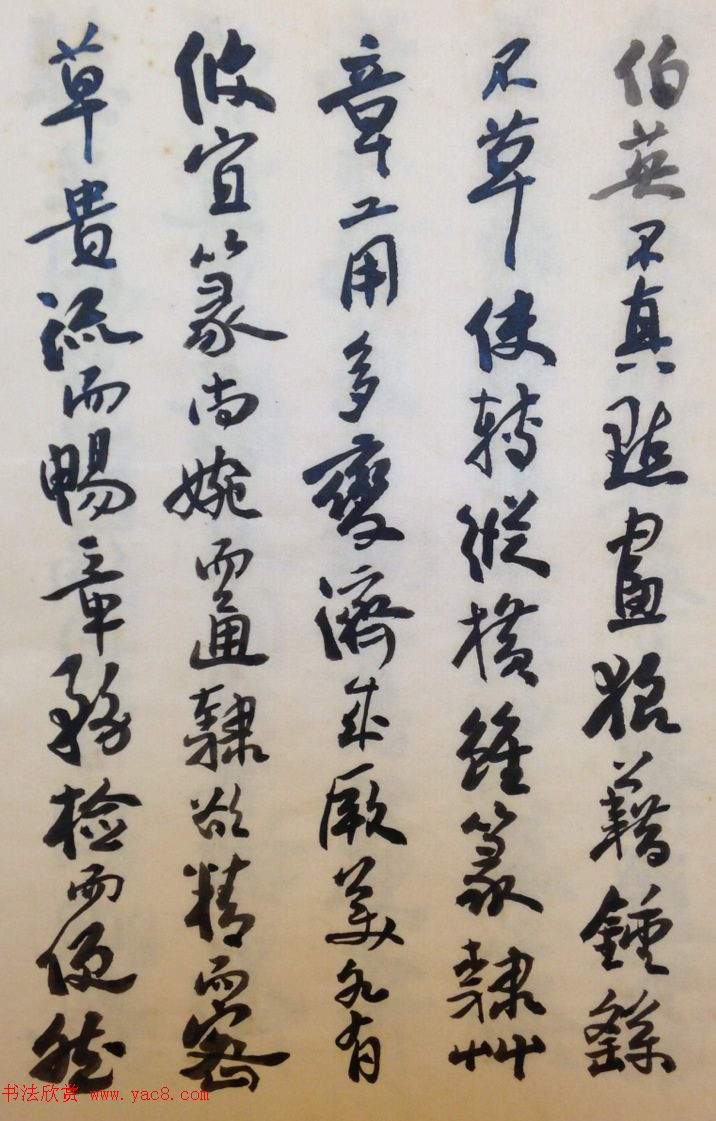 伯英不真點畫狼藉鍾繇
不草使轉縱横雖篆隸艸
章工用多變濟成厥美各有
攸宜篆尚婉而通隸欲精而密
草貴流而暢章務检而便然
书法欣赏 www.yac8.com